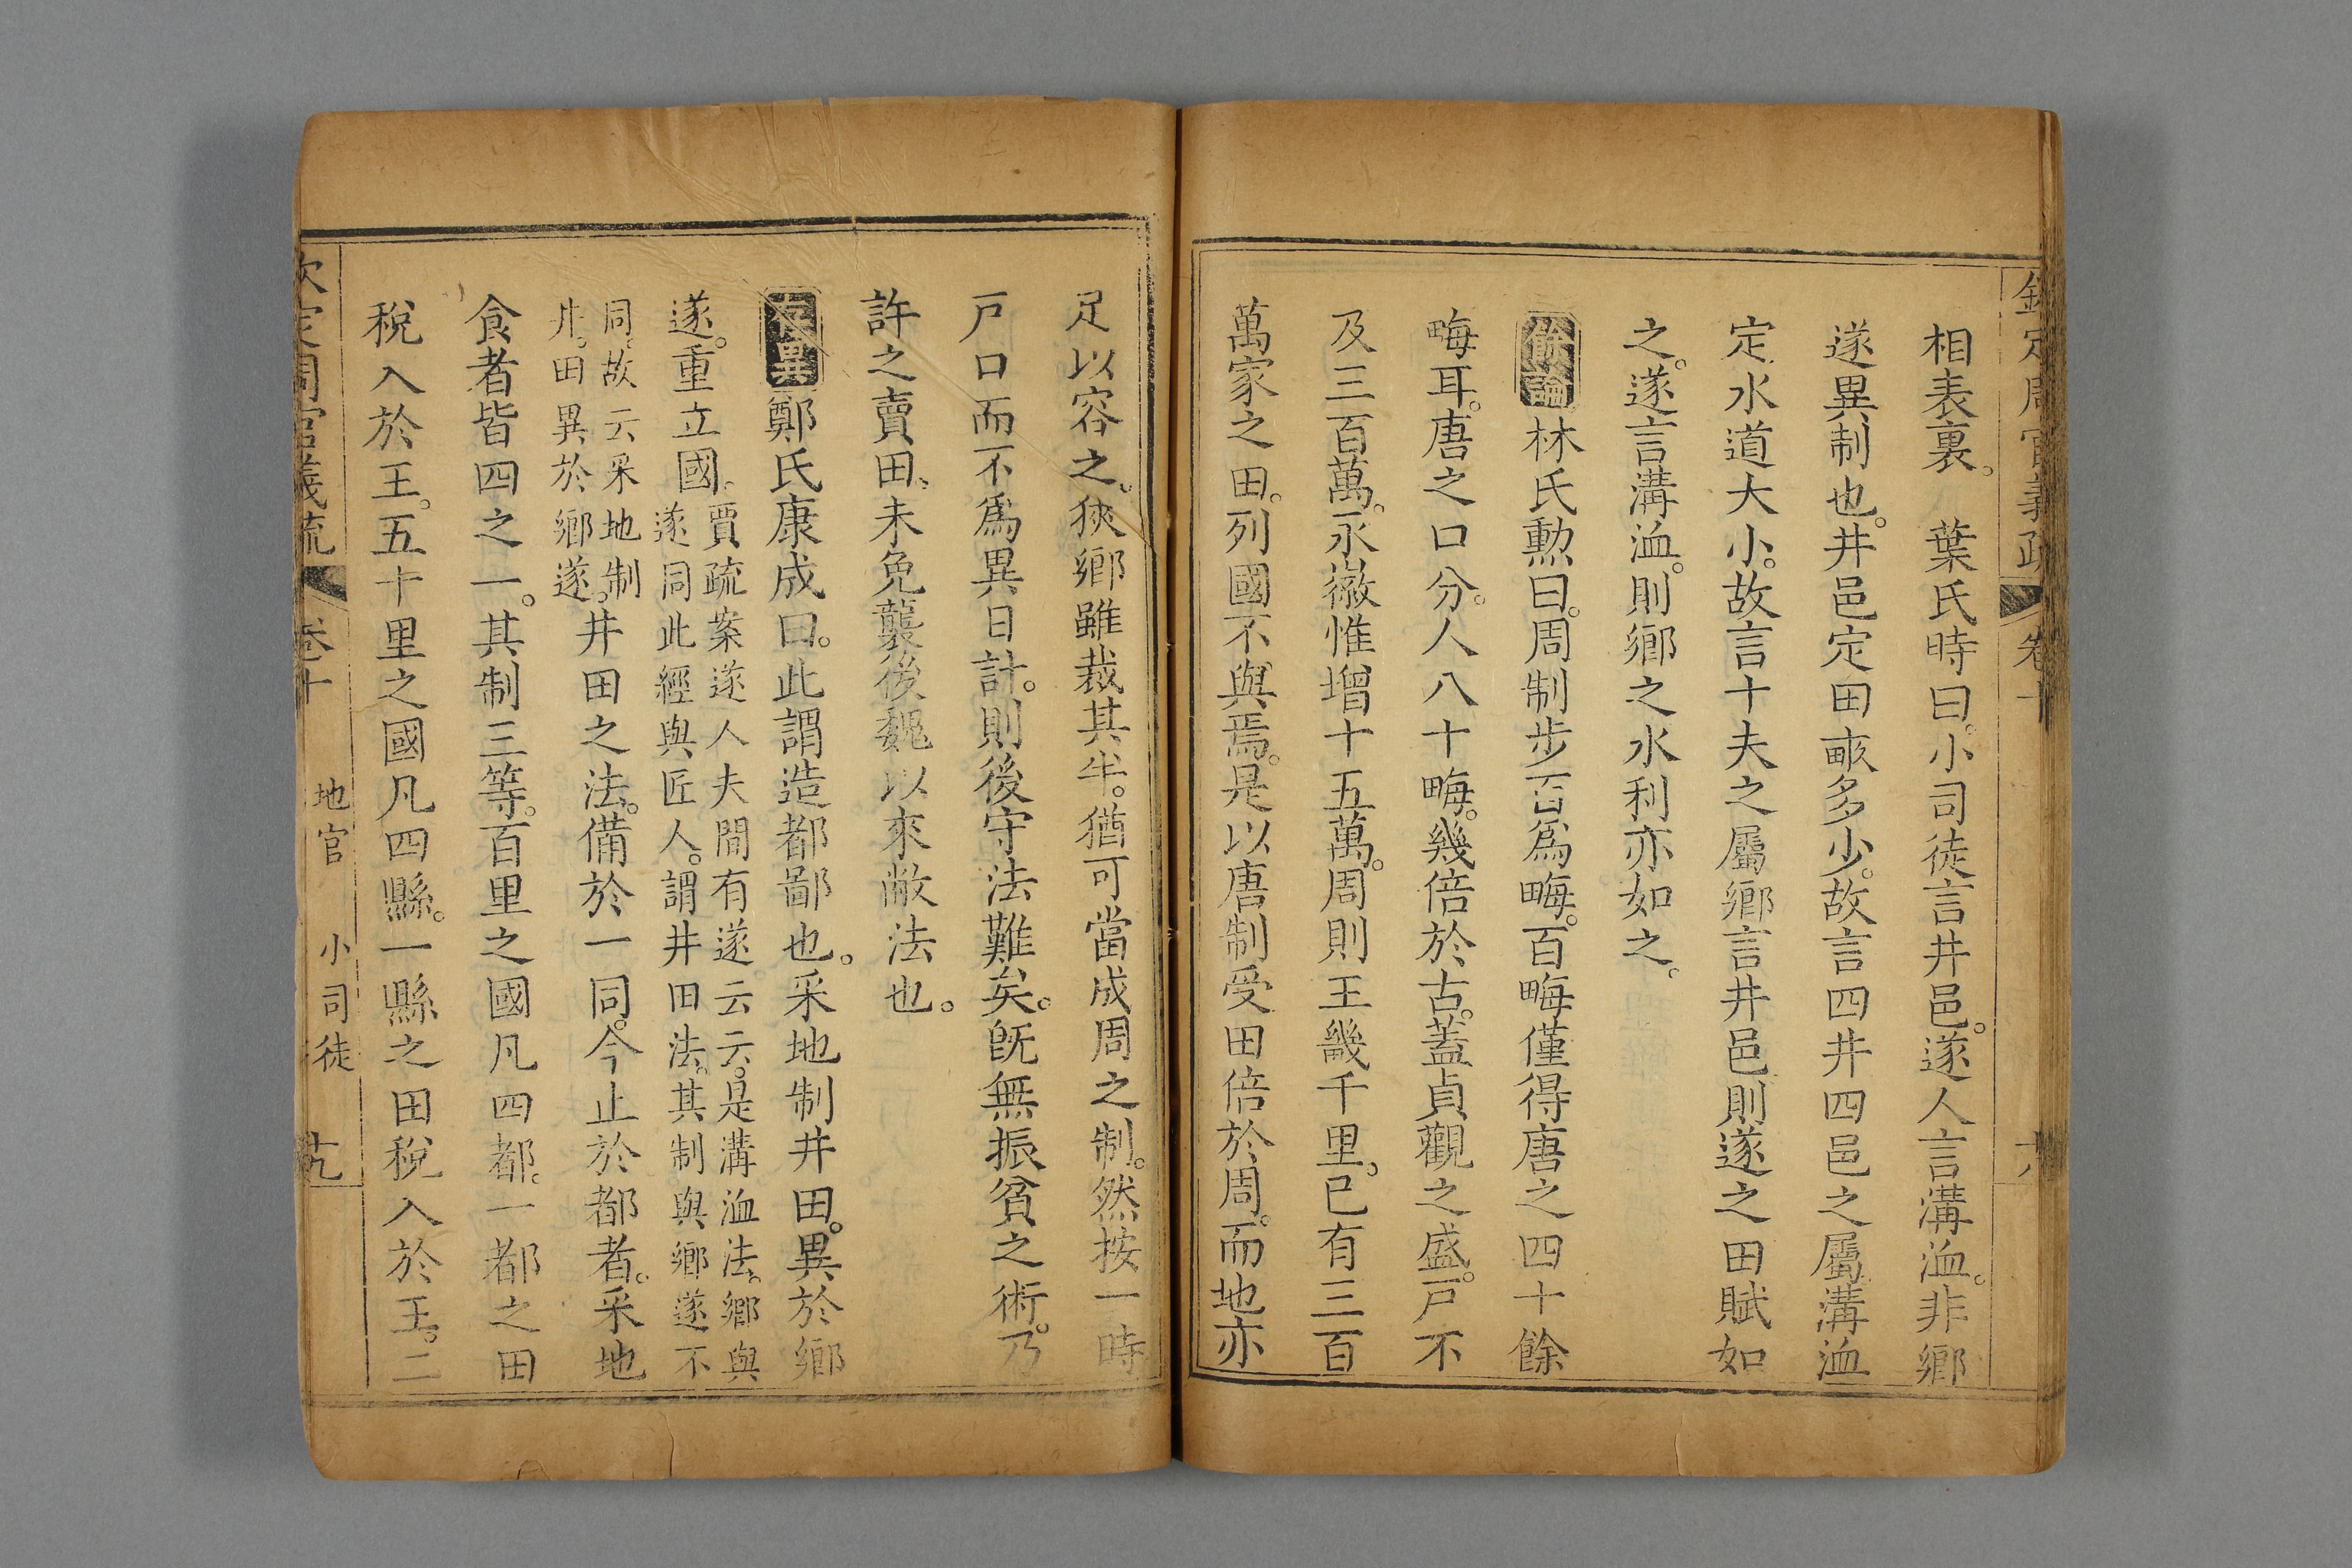 欽定周官義疏 卷十 十八
相表裏。 葉氏時曰。小司徒言井邑。遂人言溝洫。非鄉
遂異制也。井邑定田畞多少。故言四井四邑之屬溝洫
定水道大小。故言十夫之屬鄉言井邑則遂之田賦如
之。遂言溝洫。則鄉之水利亦如之。
餘論 林氏勲曰。周制步百爲畮。百畮僅得唐之四十餘
畮耳。唐之口分。人八十畮。幾倍於古。蓋貞觀之盛。戸不
及三百萬。永徽惟增十五萬。周則王畿千里。已有三百
萬家之田。列國不與焉。是以唐制受田倍於周。而地亦
足以容之。狹鄉雖裁其半。猶可當成周之制。然按一時
戸口而不爲異日計。則後守法難矣。旣無振貧之術。乃
許之賣田。未免襲後魏以來敝法也。
存異 鄭氏康成曰。此謂造都鄙也。采地制井田。異於鄉
遂。重立國。
賈疏案遂人夫間有遂。云云。是溝洫法。鄉與
遂同此經與匠人。謂井田法。其制與鄉遂不
同。故云采地制
井。田異於鄉遂。
井田之法。備於一同。今止於都者。采地
食者皆四之一。其制三等。百里之國凡四都。一都之田
稅入於王。五十里之國凡四縣。一縣之田稅入於王。二
欽定周官義疏 卷十 地官 小司徒 十九